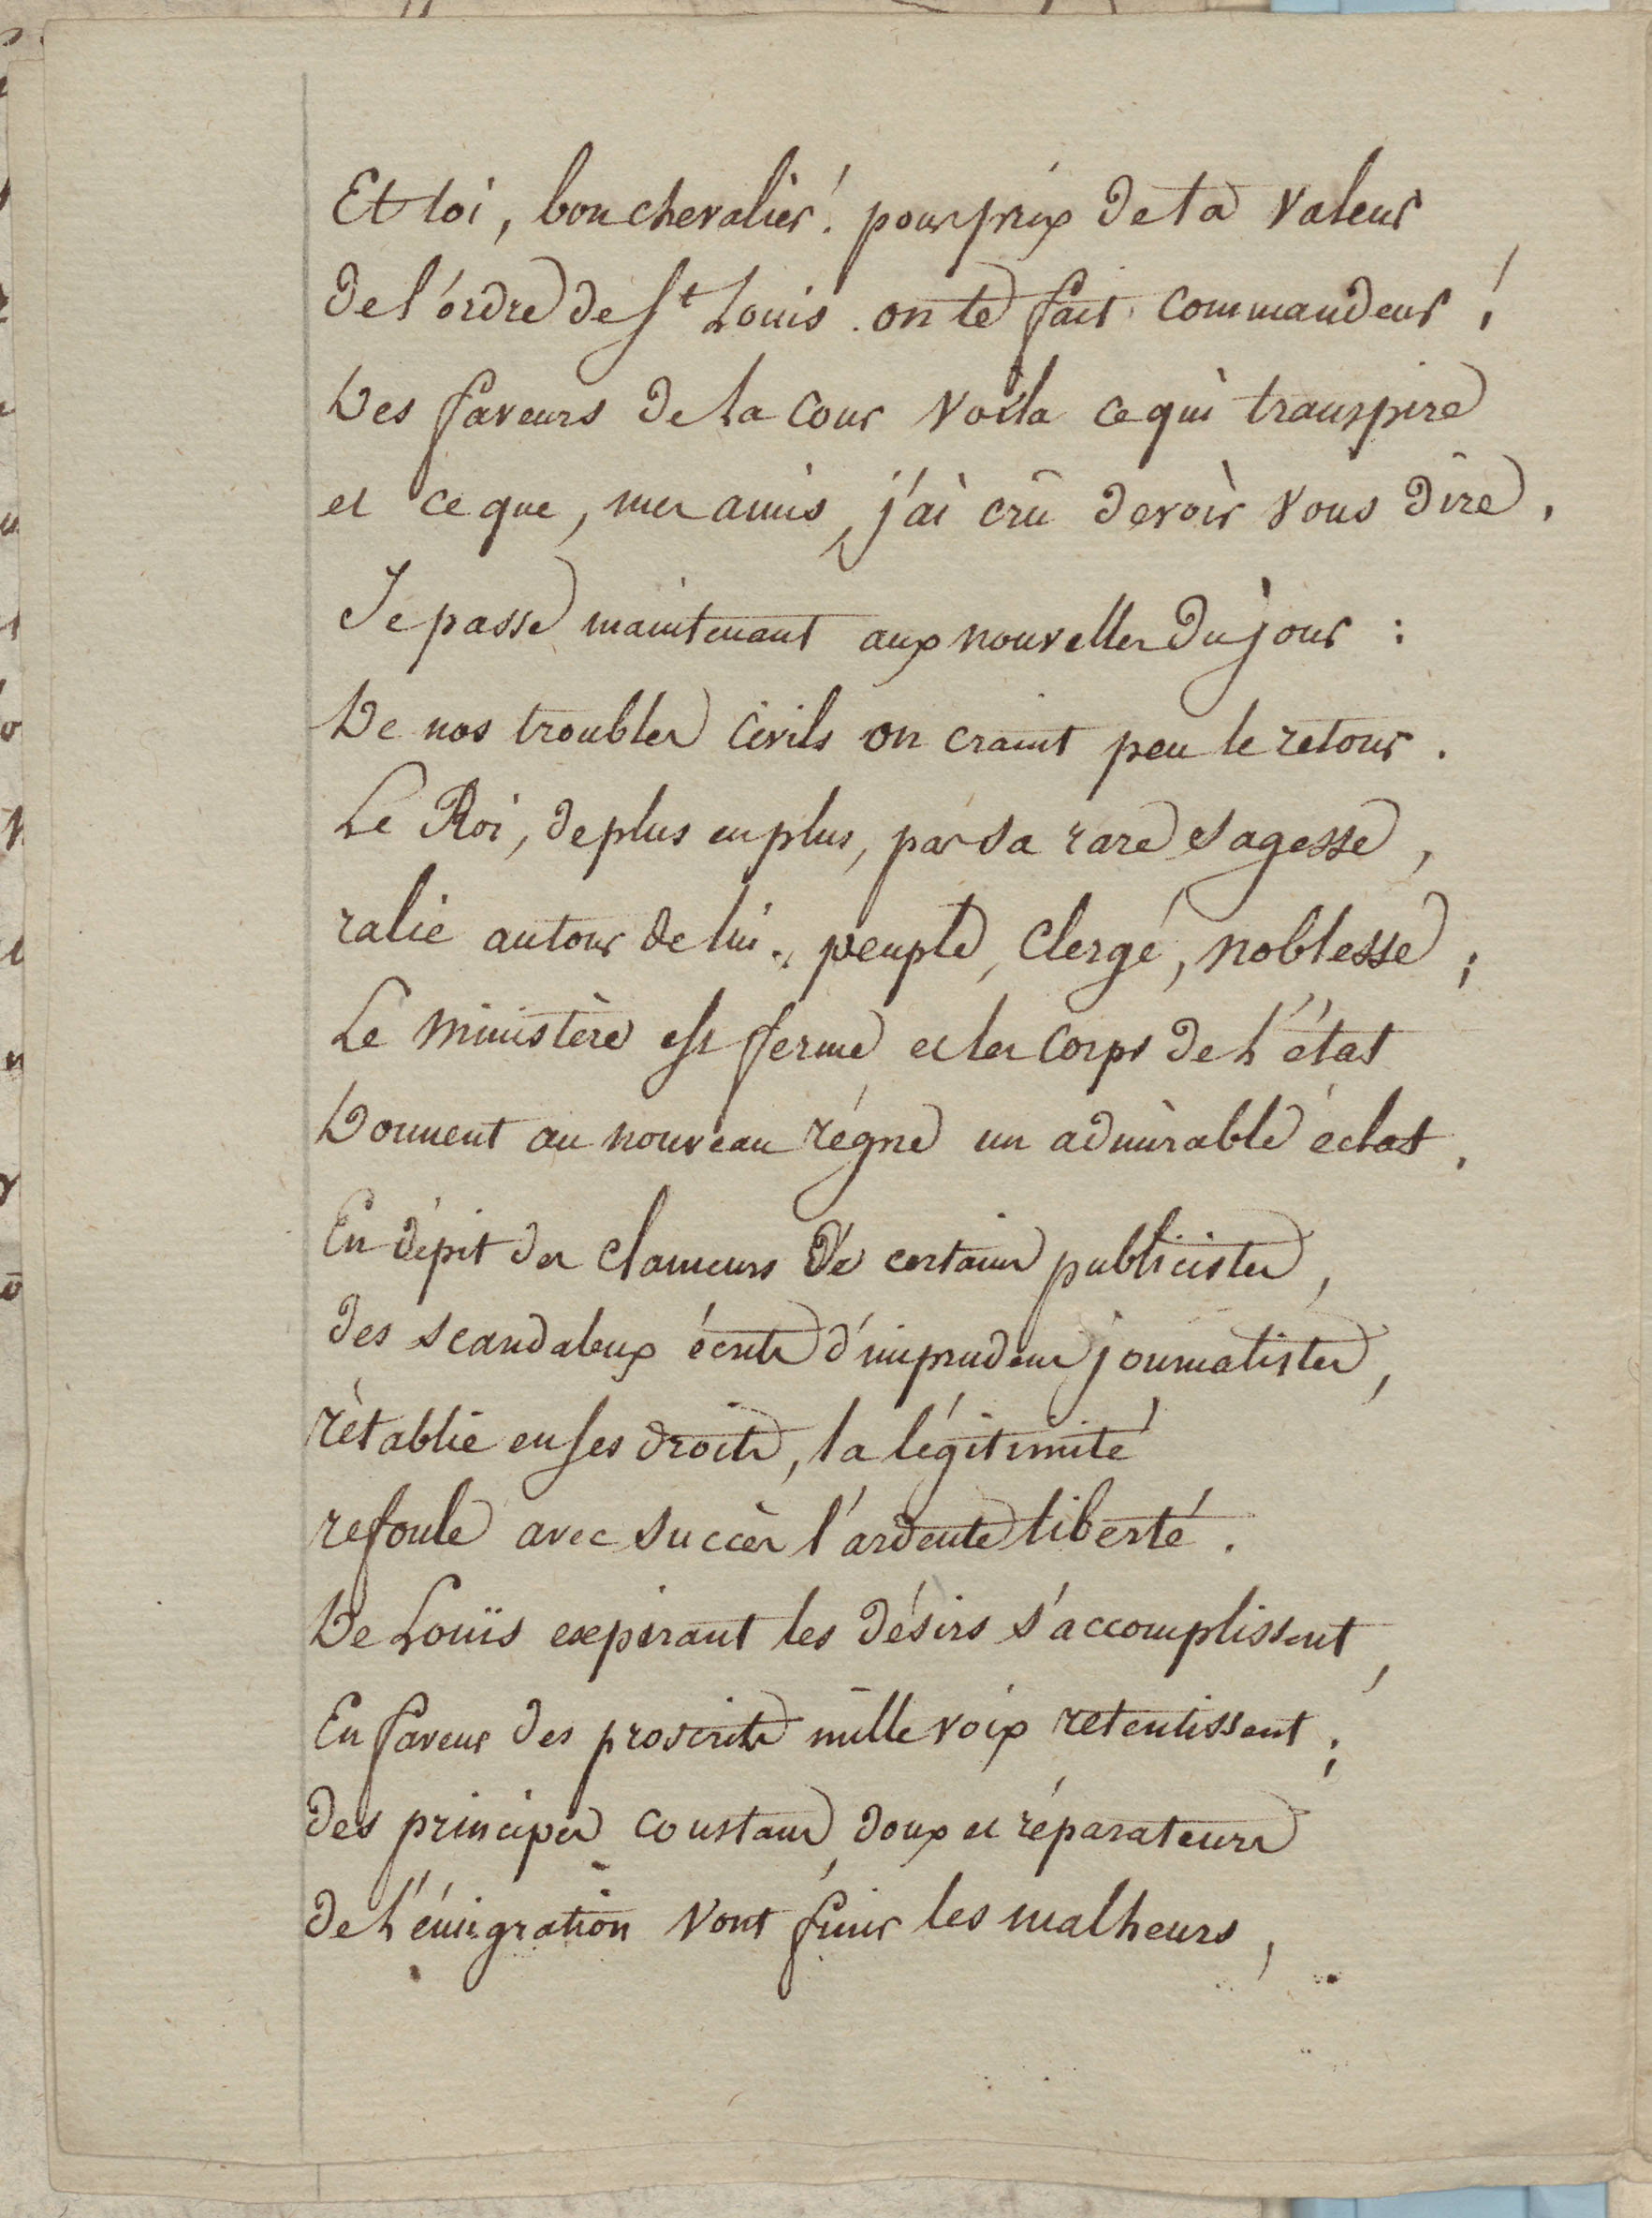 Et toi, bon chevalier! pour prix de ta valeur
de l'ordre de St Louis on te fait commandeur!
Des faveurs de la cour voila ce qui transpire
et ce que, mes amis, j'ai crû devoir vous dire.
Je passe maintenant aux nouvelles du jour :
De nos troubles civils on craint peu le retour.
Le Roi, de plus en plus, par sa rare sagesse,
ralie autour de lui peuple, clergé, noblesse;
Le ministère est ferme et les corps de l'état
Donnent au nouveau régne un admirable éclat.
En dépit des clameurs de certains publicistes,
des scandaleux écrits d'imprudens journalistes,
rétablie en ses droits, la légitimité
refoule avec succès l'ardente liberté.
De Louïs expirant les désirs s'accomplissent,
En faveur des proscrits mille voix retentissent;
des principes constans, doux et réparateurs
de l'émigration vont finir les malheurs,